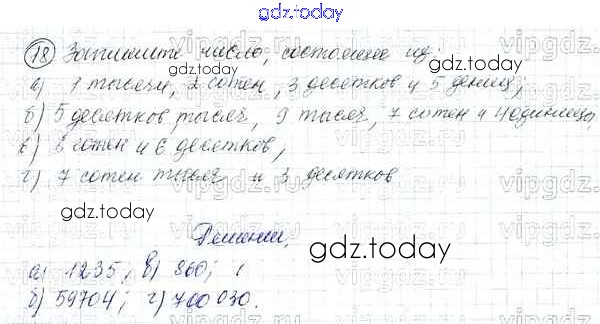 gdz.today
18 Запишите число, состоящее из:
а) 1 тысячи, 2 сотен, 3 десятков и 5 единиц;
gdz.today
б) 5 десятков тысяч, 9 тысяч, 7 сотен и 4 единицы,
в) 8 сотен и 6 десятков;
г) 7 сотен тысяч и 3 десятков
gdz.today
Решение.
gdz.today
а) 1235; в) 860;
б) 59704; г) 700 030.